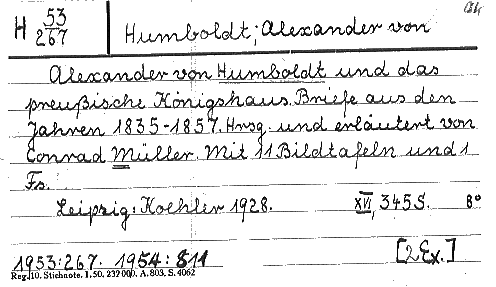 H 53/267 Humboldt; Alexander von
Alexander von Humboldt und das
preußische Königshaus. Briefe aus den
Jahren 1835-1857. Hrsg. und erläutert von
Conrad Müller. Mit 11 Bildtafeln und 1
Fs.
Leipzig: Koehler 1928. XVI, 345 S. 8°
1953:267. 1954:811 [2 Ex.]
Reg. 10. Stichnote. 1. 50. 232 000. A. 803. S. 4062